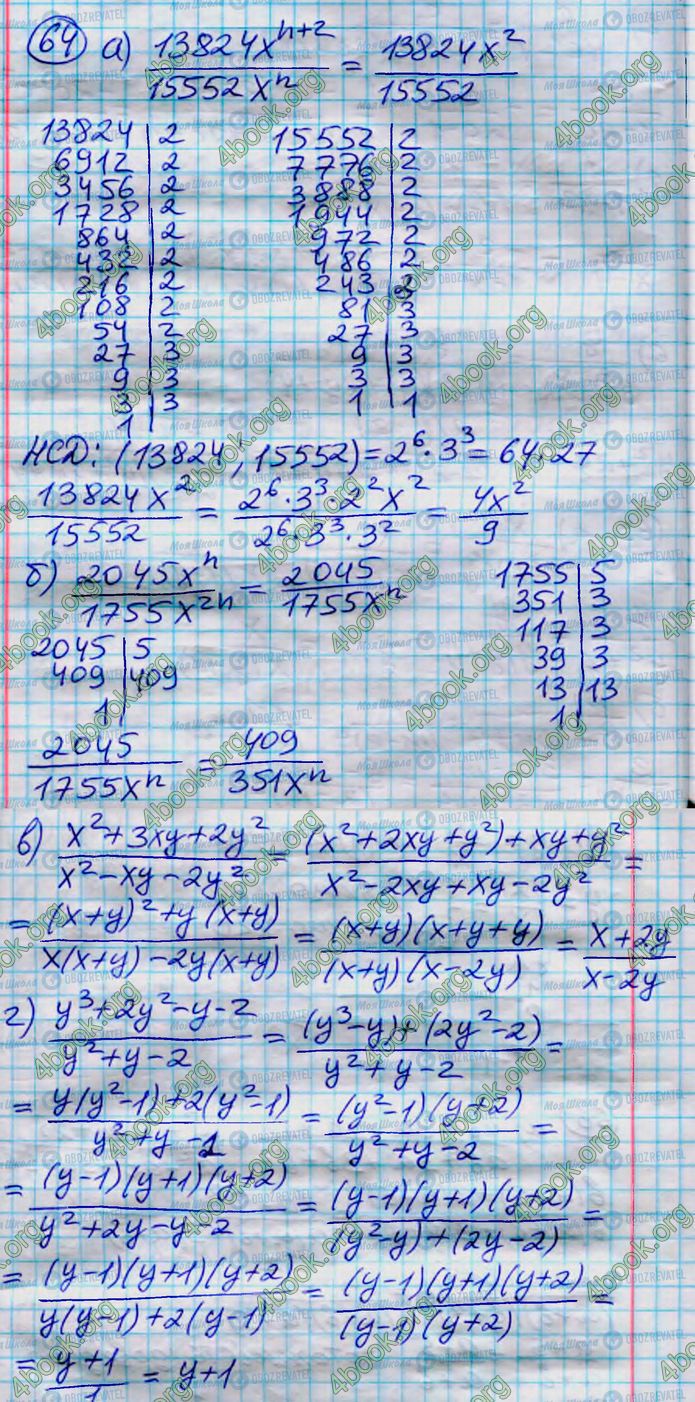 64 а) 13824x^(n+2) / 15552x^n = 13824x^2 / 15552
13824 | 2
6912 | 2
3456 | 2
1728 | 2
864 | 2
432 | 2
216 | 2
108 | 2
54 | 2
27 | 3
9 | 3
3 | 3
1
15552 | 2
7776 | 2
3888 | 2
1944 | 2
972 | 2
486 | 2
243 | 3
81 | 3
27 | 3
9 | 3
3 | 3
1 | 1
НСД: (13824, 15552) = 2^6 · 3^3 = 64·27
13824x^2 / 15552 = 2^6·3^3·2^2x^2 / 2^6·3^3·3^2 = 4x^2 / 9
б) 2045x^n / 1755x^(2n) = 2045 / 1755x^n
1755 | 5
351 | 3
117 | 3
39 | 3
13 | 13
1
2045 | 5
409 | 409
1
2045 / 1755x^n = 409 / 351x^n
в) x^2+3xy+2y^2 / x^2-xy-2y^2 = (x^2+2xy+y^2)+xy+y^2 / x^2-2xy+xy-2y^2 =
= (x+y)^2+y(x+y) / x(x+y)-2y(x+y) = (x+y)(x+y+y) / (x+y)(x-2y) = x+2y / x-2y
г) y^3+2y^2-y-2 / y^2+y-2 = (y^3-y)+(2y^2-2) / y^2+y-2 =
= y(y^2-1)+2(y^2-1) / y^2+y-2 = (y^2-1)(y+2) / y^2+y-2 =
= (y-1)(y+1)(y+2) / y^2+2y-y-2 = (y-1)(y+1)(y+2) / (y^2-y)+(2y-2) =
= (y-1)(y+1)(y+2) / y(y-1)+2(y-1) = (y-1)(y+1)(y+2) / (y-1)(y+2) =
= y+1 / 1 = y+1
4book.org
Моя Школа
OBOZREVATEL